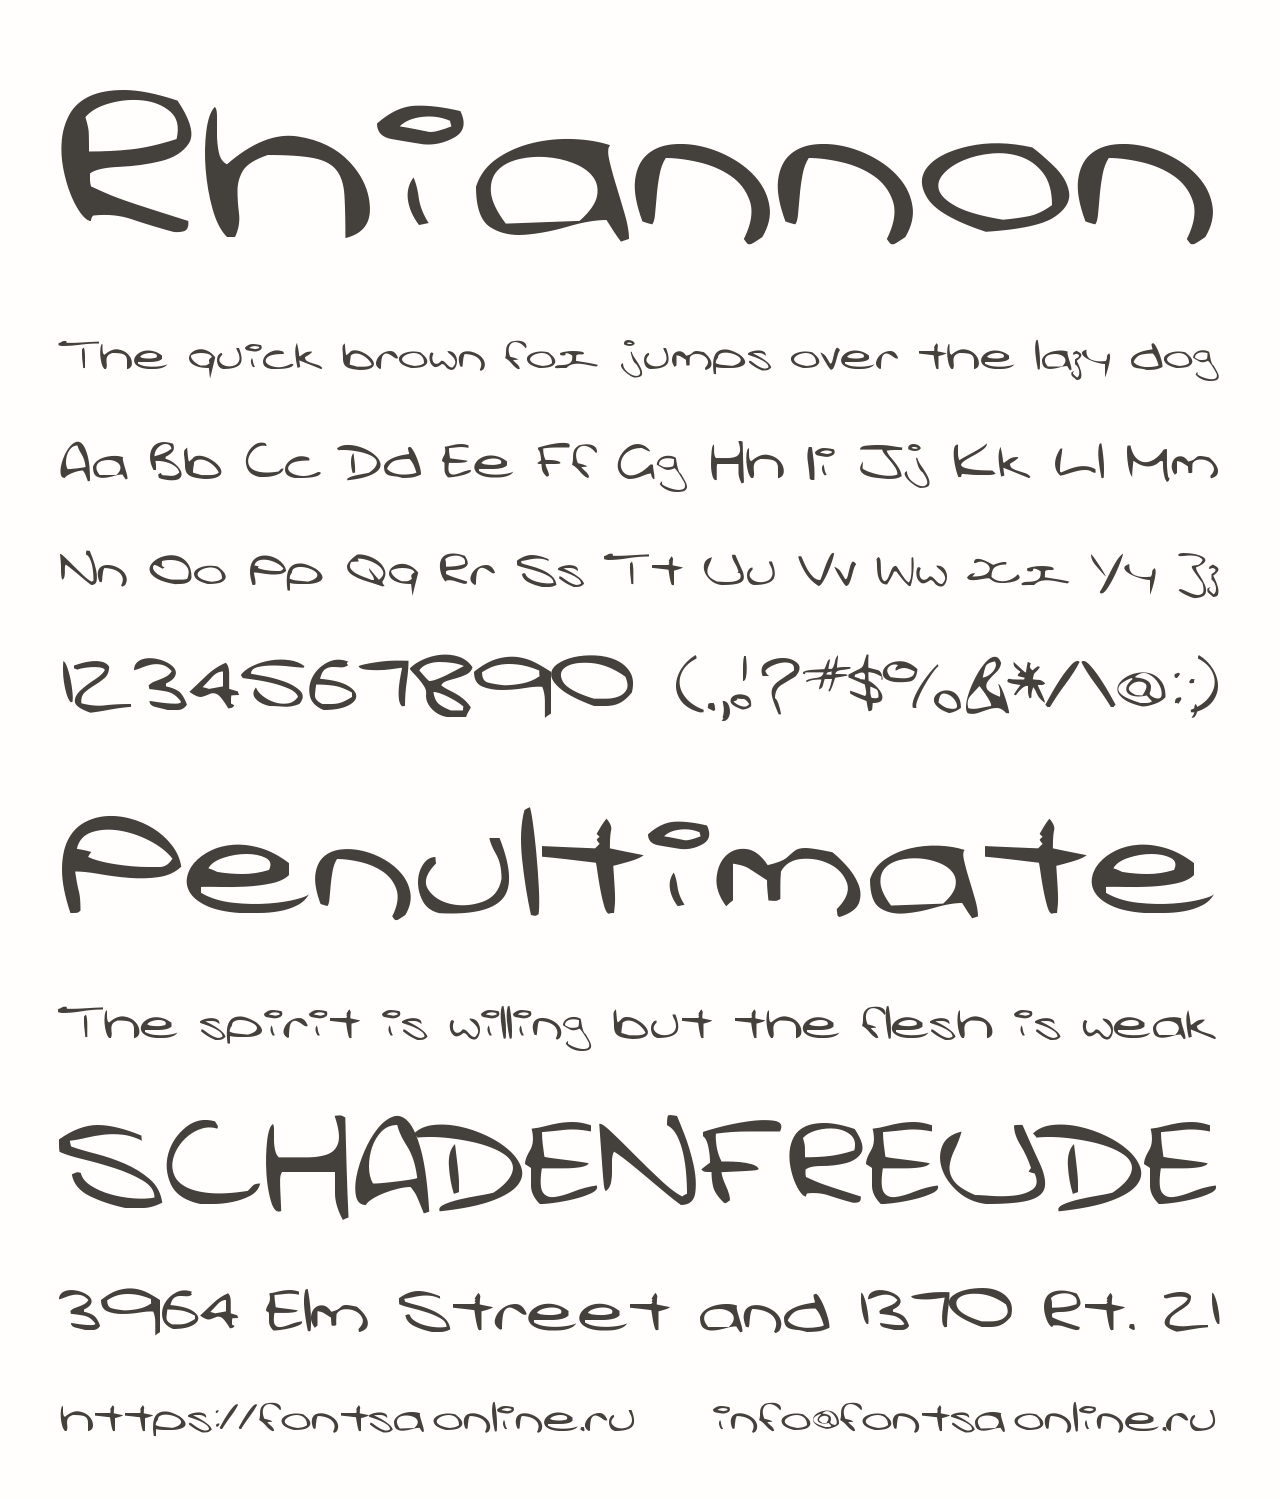 Rhiannon
The quick brown fox jumps over the lazy dog
Aa Bb Cc Dd Ee Ff Gg Hh Ii Jj Kk Ll Mm
Nn Oo Pp Qq Rr Ss Tt Uu Vv Ww Xx Yy Zz
1234567890 (.,¡!?#$°%&*/\@:;)
Penultimate
The spirit is willing but the flesh is weak
SCHADENFREUDE
3964 Elm Street and 1370 Rt. 21
https://fontsaonline.ru info@fontsaonline.ru